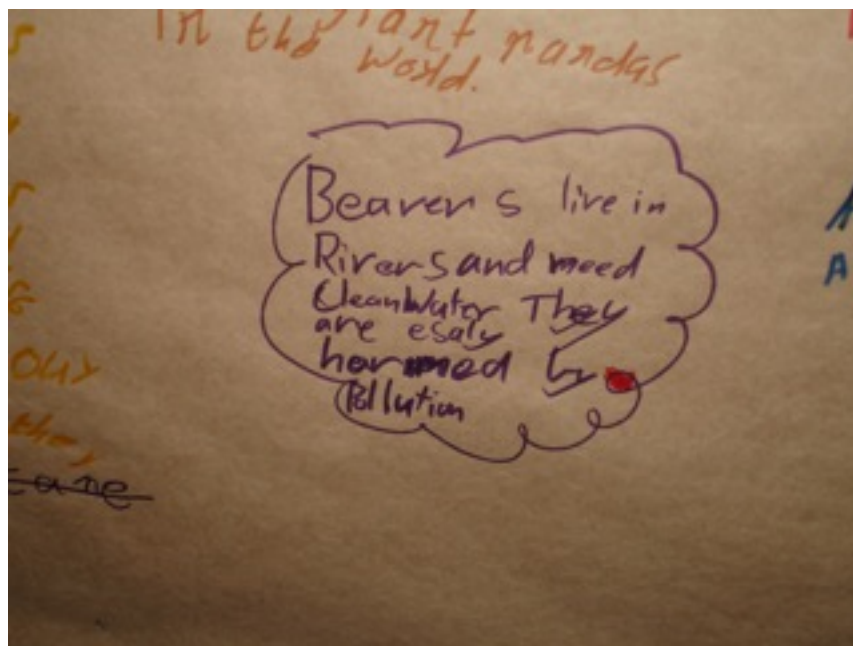 In the giant pandas
world.
Beavers live in
Rivers and need
Clean Water They
are esaly
harmed by
Pollution
our
the,